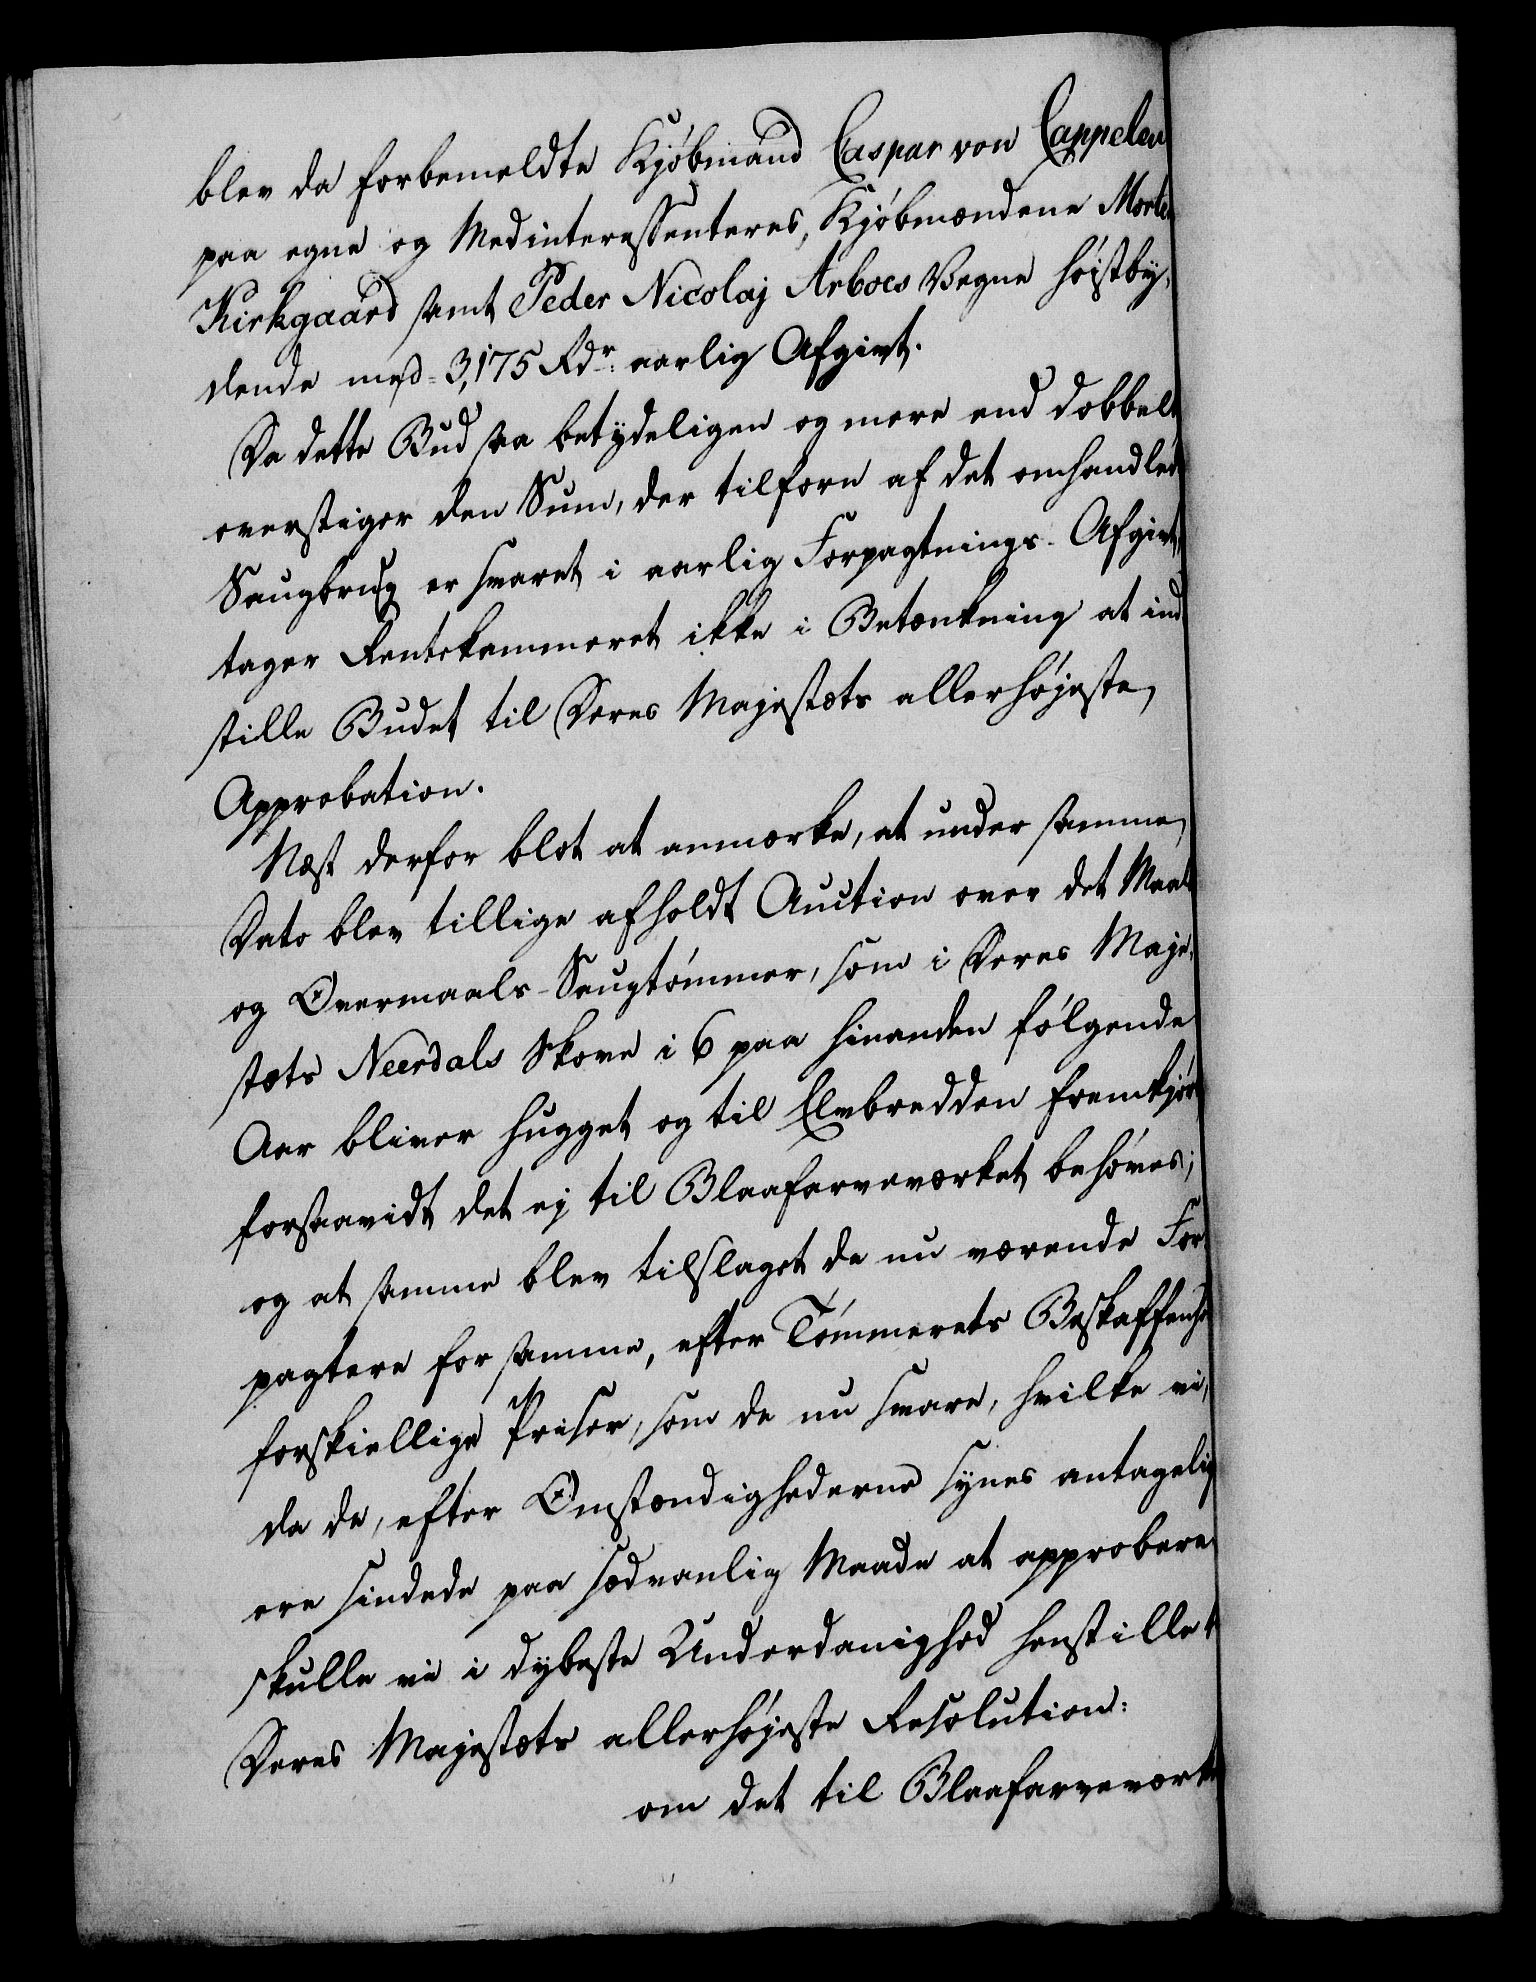 blev da forbemeldte Kjøbmand Caspar von Cappelen
paa egne og Medinteressenteres, Kjøbmændene Morte
Kirkgaard samt Peder Nicolaj Arboes Vegne høistby-
dende med 3,175 Rdr. aarlig Afgivt.
Da dette Bud saa betydeligen og mere end dobbelt
overstiger den Sum, der tilforn af det omhandlede
Saugbrug er svaret i aarlig Forpagtnings-Afgivt,
tager Rentekammeret ikke i Betænkning at ind
stille Budet til Deres Majestæts allerhøjeste
Approbation.
Næst derfor blot at anmærke, at under samme
Dato blev tillige afholdt Auction over det Maal
og Overmaals-Saugtømmer, som i Deres Maje-
stæts Neerdals Skove i 6 paa hinanden følgende
Aar bliver hugget og til Elvbredden fremkjør
forsaavidt det ej til Blaafarveværket behøves;
og at samme blev tilslaget de nu værende For-
pagtere for samme, efter Tømmerets Beskaffenhe
forskiellige Priser, som de nu svare, hvilke vi,
da de, efter Omstændighederne synes antagelig
ere sindede paa sædvanlig Maade at approbere
skulle vi i dybeste Underdanighed henstille t
Deres Majestæts allerhøjeste Resolution:
om det til Blaafarveværk